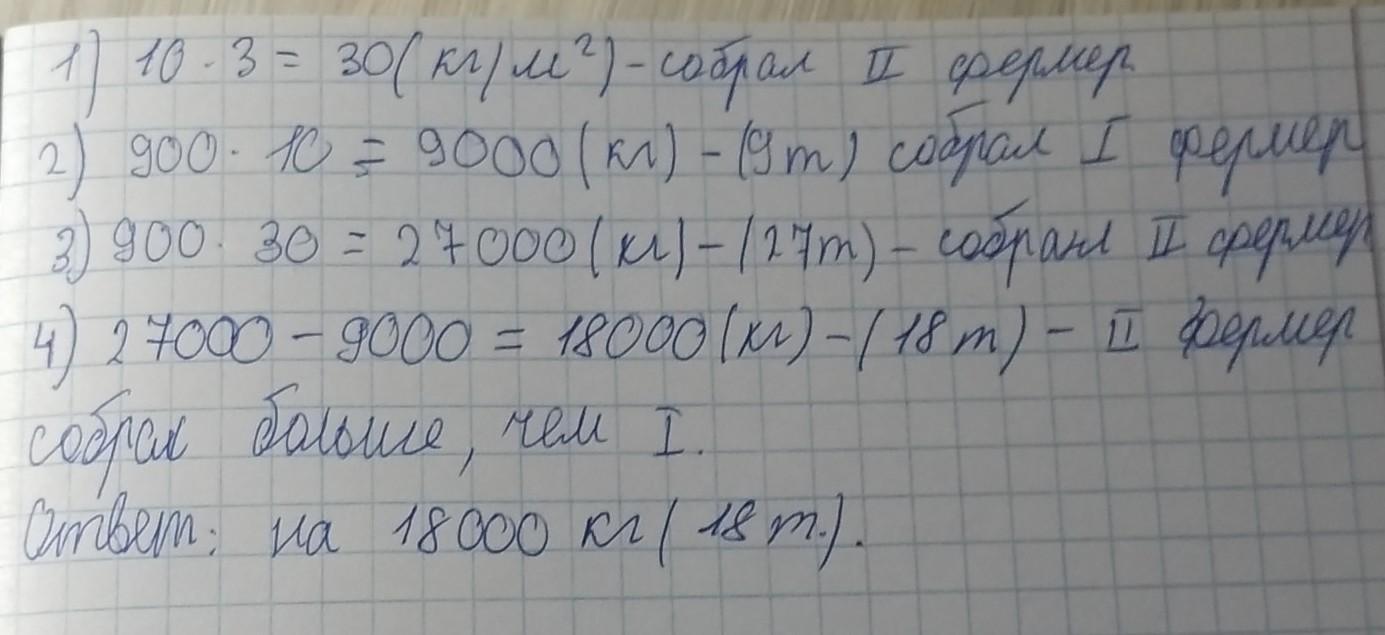 1) 10 · 3 = 30 (кг/м²) - собрал II фермер
2) 900 · 10 = 9000 (кг) - (9 т) собрал I фермер
3) 900 · 30 = 27000 (кг) - (27 т) - собрал II фермер
4) 27000 - 9000 = 18000 (кг) - (18 т) - II фермер
собрал больше, чем I.
Ответ: на 18000 кг (18 т.).